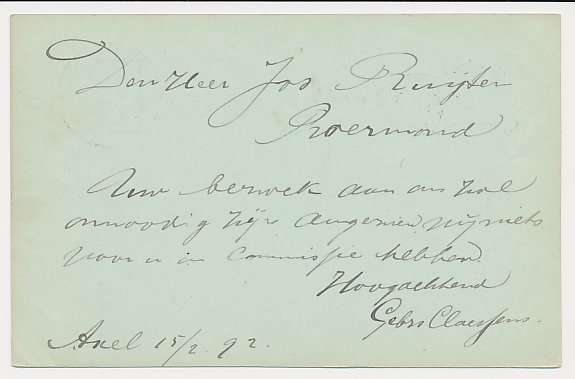 Den Heer Jos Ruijten
Roermond
Uw bezoek aan ons zal
onnoodig zijn aangezien wij niets
voor u in Commissie hebben.
Hoogachtend
Gebrs Claessens.
Axel 15/2 92.